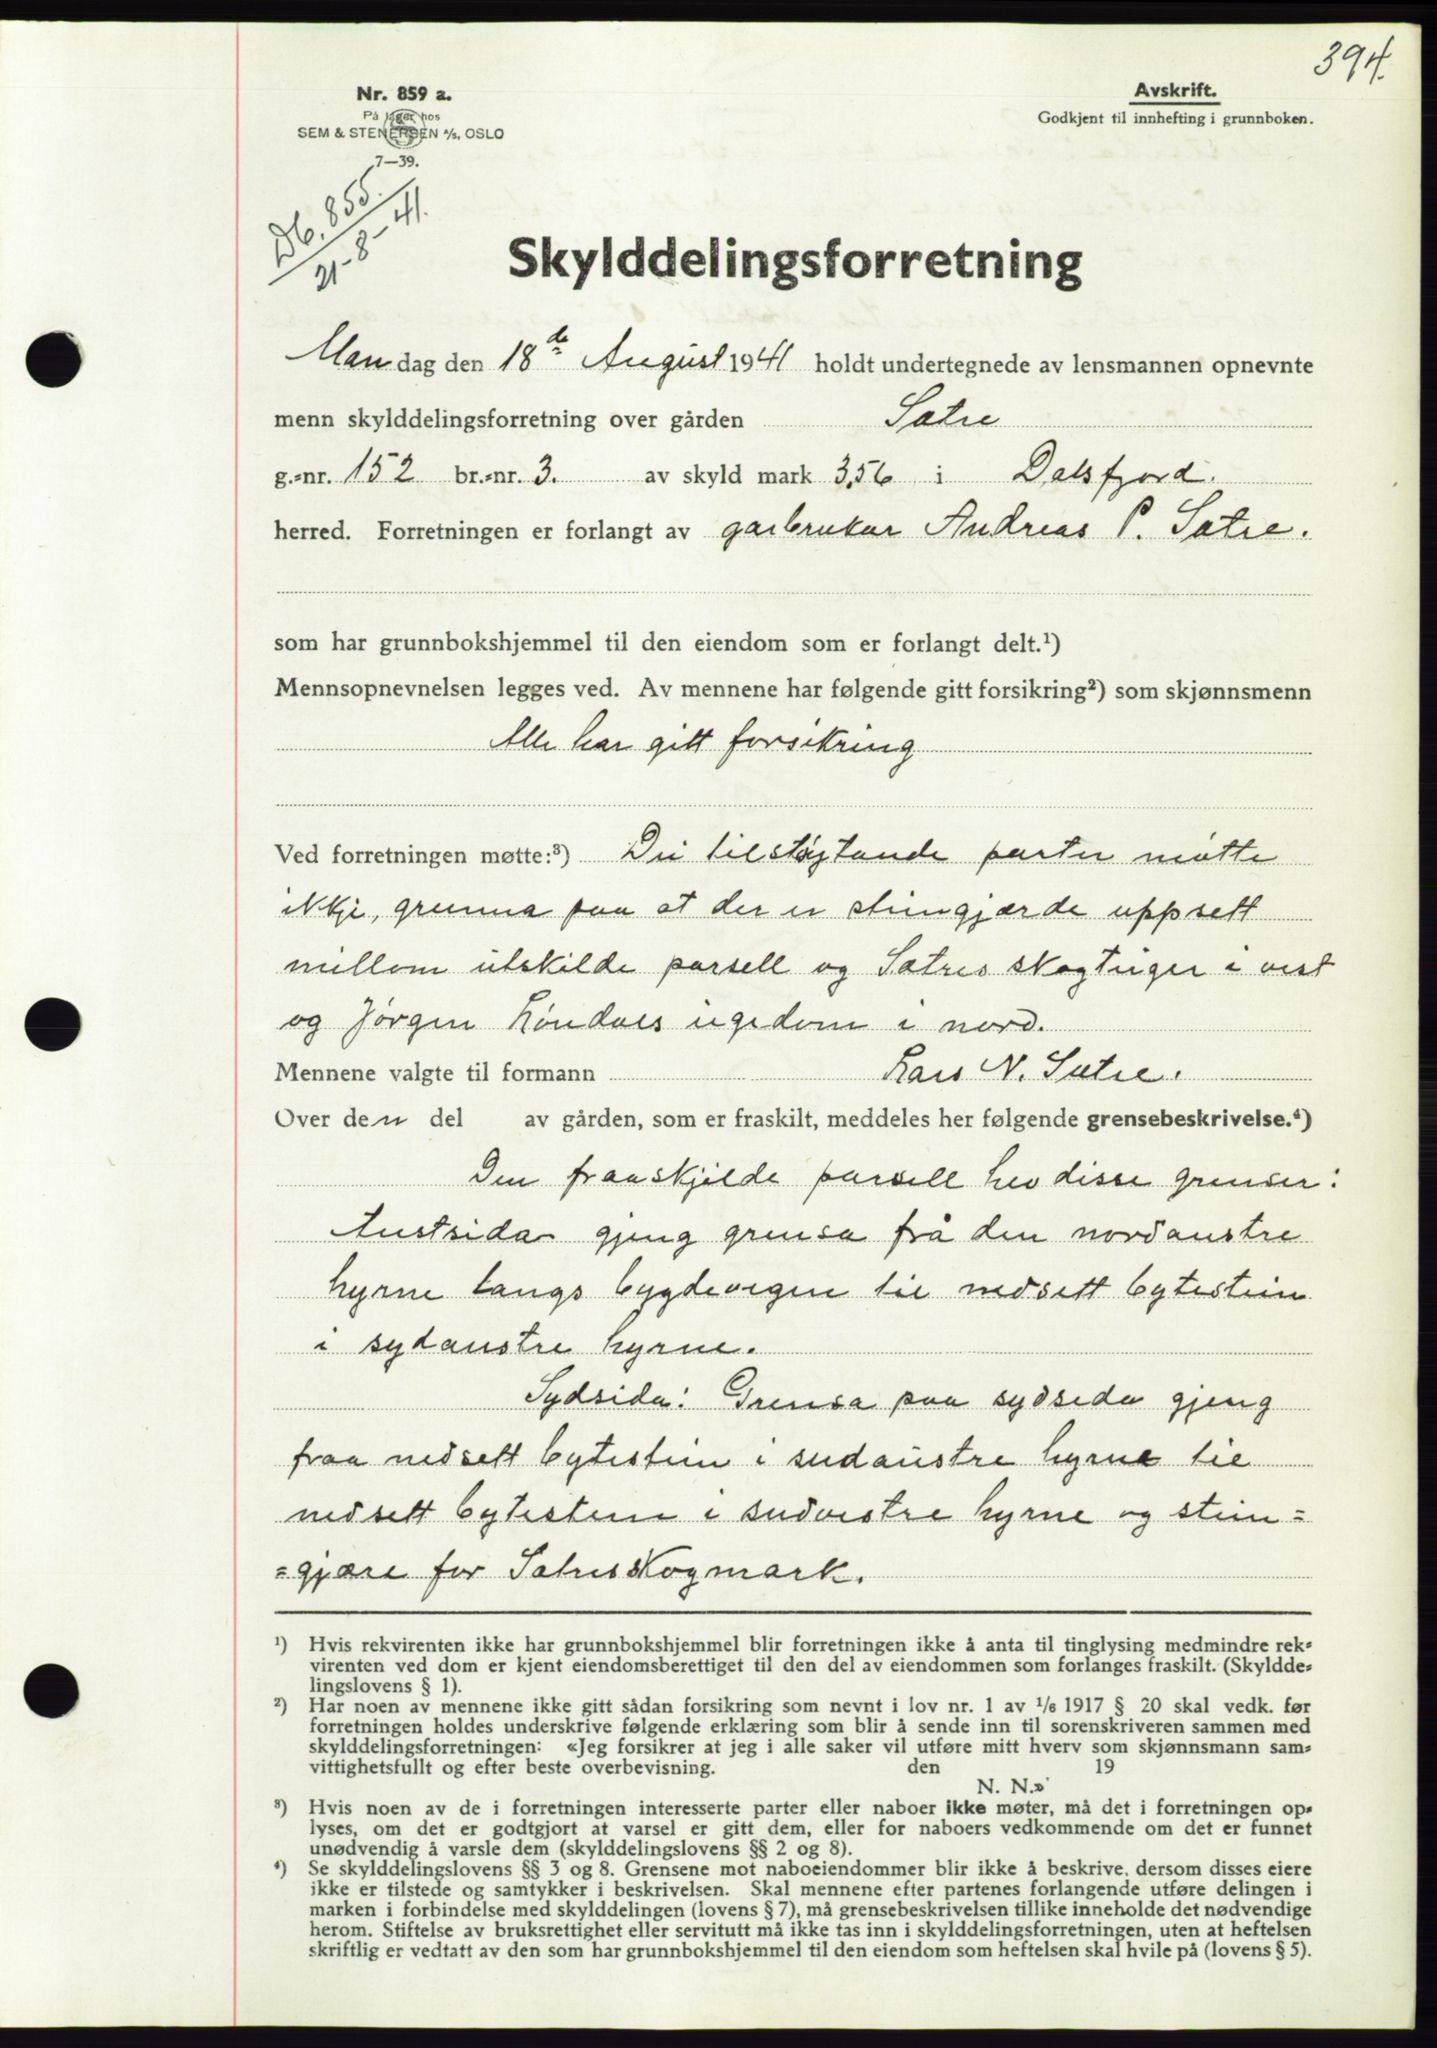 394.
Nr. 859 a.
På lager hos
SEM & STENERSEN A/S, OSLO
7—39.
Avskrift.
Godkjent til innhefting i grunnboken.
Db. 855.
21-8-41.
Skylddelingsforretning
Mandag den 18de August 1941 holdt undertegnede av lensmannen opnevnte
menn skylddelingsforretning over gården Satre
g.-nr. 152 br.-nr. 3. av skyld mark 3,56 i Dalsfjord.
herred. Forretningen er forlangt av garbrukar Andreas P. Satre.
som har grunnbokshjemmel til den eiendom som er forlangt delt.¹)
Mennsopnevnelsen legges ved. Av mennene har følgende gitt forsikring²) som skjønnsmenn
Alle har gitt forsikring
Ved forretningen møtte:³) Dei tilstøytande parter møtte
ikkje, grunna paa at der er steingjærde uppsett
millom utskilde parsell og Satres skogteiger i vest
og Jørgen Løndals eigedom i nord.
Mennene valgte til formann Lars N. Satre.
Over den del av gården, som er fraskilt, meddeles her følgende grensebeskrivelse.⁴)
Den fraaskjilde parsell hev disse grenser:
Austsida gjeng grensa frå den nordaustre
hyrne langs bygdevegen til nedsett bytestein
i sydaustre hyrne.
Sydsida: Grensa paa sydsida gjeng
fraa nedsett bytestein i sudaustre hyrne til
nedsett bytestein i sudvestre hyrne og stein=
=gjære for Satresskogmark.
¹) Hvis rekvirenten ikke har grunnbokshjemmel blir forretningen ikke å anta til tinglysing medmindre rek-
virenten ved dom er kjent eiendomsberettiget til den del av eiendommen som forlanges fraskilt. (Skyldde-
lingslovens § 1).
²) Har noen av mennene ikke gitt sådan forsikring som nevnt i lov nr. 1 av 1/6 1917 § 20 skal vedk. før
forretningen holdes underskrive følgende erklæring som blir å sende inn til sorenskriveren sammen med
skylddelingsforretningen: «Jeg forsikrer at jeg i alle saker vil utføre mitt hverv som skjønnsmann sam-
vittighetsfullt og efter beste overbevisning. den 19
N. N.»
³) Hvis noen av de i forretningen interesserte parter eller naboer ikke møter, må det i forretningen op-
lyses, om det er godtgjort at varsel er gitt dem, eller for naboers vedkommende om det er funnet
unødvendig å varsle dem (skylddelingslovens §§ 2 og 8).
⁴) Se skylddelingslovens §§ 3 og 8. Grensene mot naboeiendommer blir ikke å beskrive, dersom disses eiere
ikke er tilstede og samtykker i beskrivelsen. Skal mennene efter partenes forlangende utføre delingen i
marken i forbindelse med skylddelingen (lovens § 7), må grensebeskrivelsen tillike inneholde det nødvendige
herom. Stiftelse av bruksrettighet eller servitutt må ikke tas inn i skylddelingsforretningen, uten at heftelsen
skriftlig er vedtatt av den som har grunnbokshjemmel til den eiendom som heftelsen skal hvile på (lovens § 5).